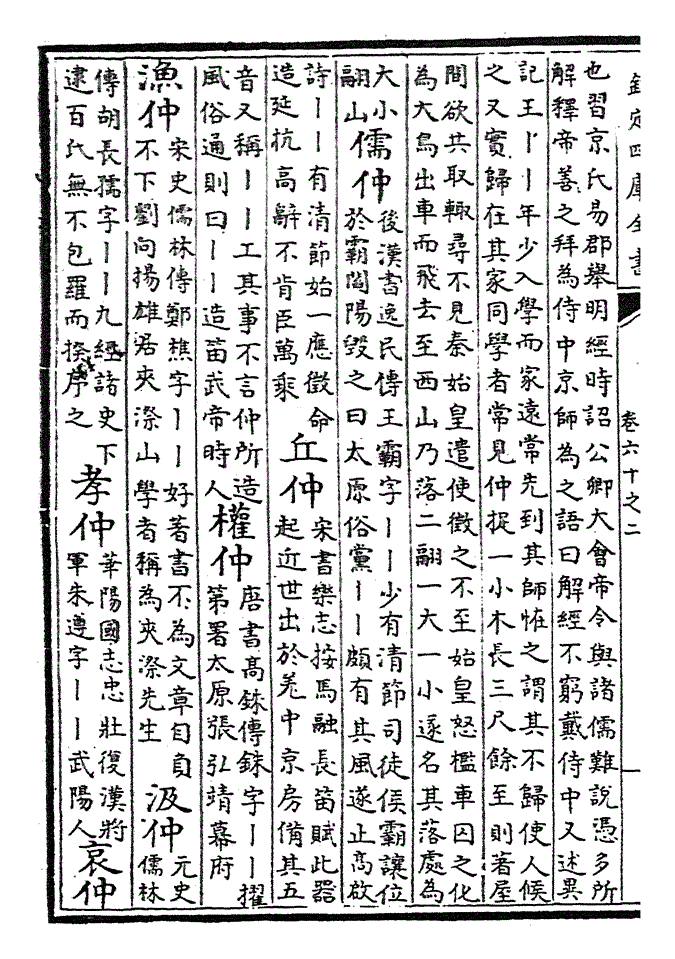 欽定四庫全書
卷六十之二
一
也習京氏易郡舉明經時詔公卿大會帝令與諸儒難說憑多所
解釋帝善之拜為侍中京師為之語曰解經不窮戴侍中又述異
記王丨丨年少入學而家遠常先到其師恠之謂其不歸使人候
之又實歸在其家同學者常見仲捉一小木長三尺餘至則著屋
間欲共取輙尋不見秦始皇遣使徵之不至始皇怒檻車囚之化
為大鳥出車而飛去至西山乃落二翮一大一小遂名其落處為
大小
翮山
儒仲
後漢書逸民傳王霸字丨丨少有清節司徒侯霸讓位
於霸閻陽毀之曰太原俗黨丨丨頗有其風遂止高啟
詩丨丨有清節始一應徵命
造延抗高辭不肯臣萬乘
丘仲
宋書樂志按馬融長笛賦此器
起近世出於羌中京房備其五
音又稱丨丨工其事不言仲所造
風俗通則曰丨丨造笛武帝時人
權仲
唐書高銖傳銖字丨丨擢
第署太原張弘靖幕府
漁仲
宋史儒林傳鄭樵字丨丨好著書不為文章自負
不下劉向揚雄居夾漈山學者稱為夾漈先生
汲仲
元史
儒林
傳胡長孺字丨丨九經諸史下
逮百氏無不包羅而揆序之
孝仲
華陽國志忠壯復漢將
軍朱遵字丨丨武陽人
哀仲